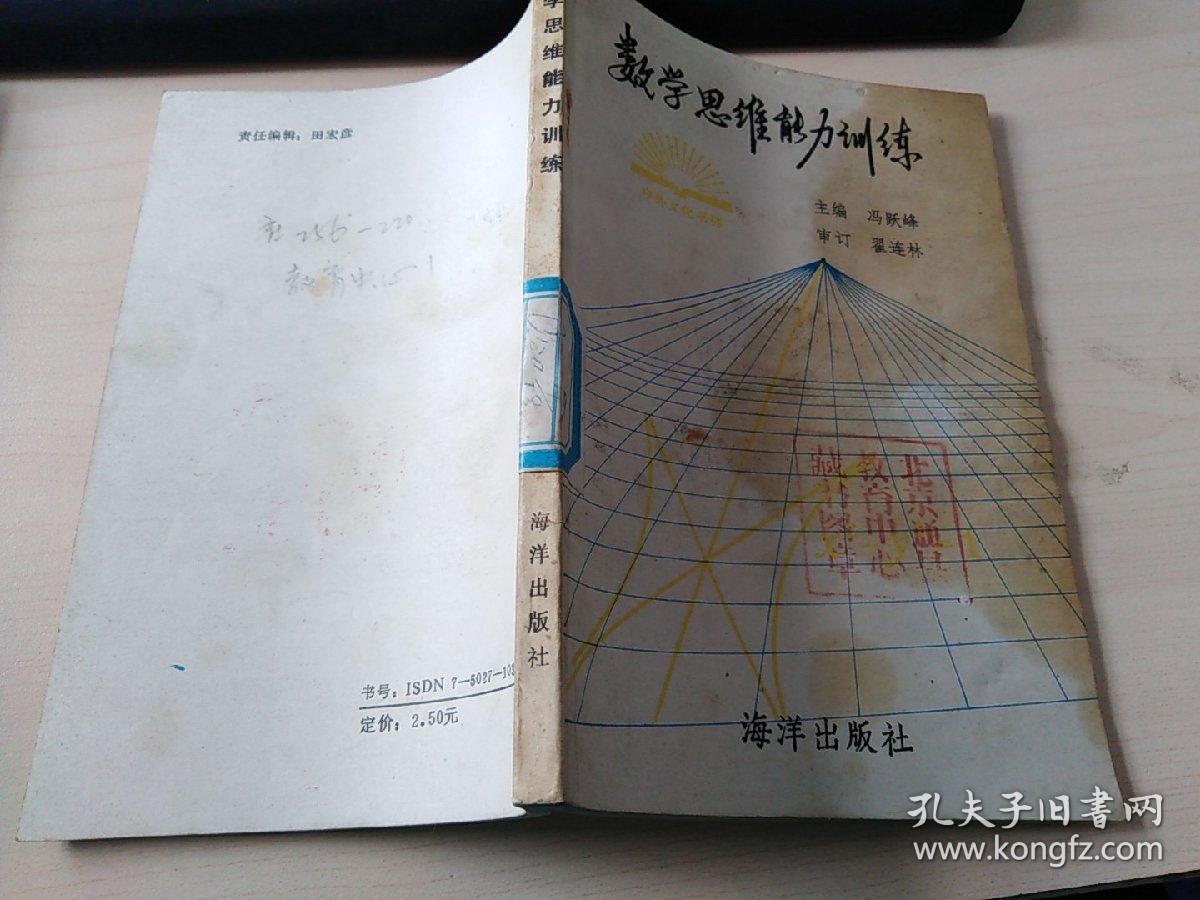 责任编辑：田宏彦
教育中心
书号：ISDN 7—5027—103
定价：2.50元
学思维能力训练
海洋出版社
数学思维能力训练
中外文化书站
主编 冯跃峰
审订 翟连林
北京
教育中心
藏书图章
海洋出版社
孔夫子旧书网
www.kongfz.com